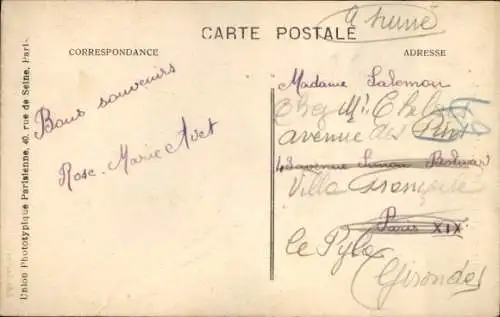 A
CARTE POSTALE
CORRESPONDANCE
ADRESSE
Bons souvenirs
Rose-Marie
Madame Salomon
Chez Mr
avenue des Pins
48 avenue Simon Bolivar
Villa Française
Paris XIX
Le Pyla
(Gironde)
Union Phototypique Parisienne, 40, rue de Seine, Paris